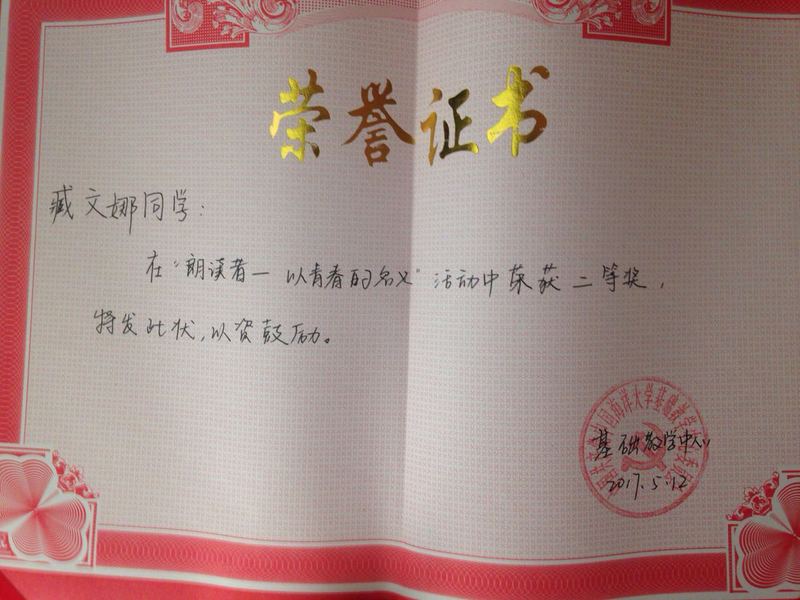 荣誉证书
臧文娜同学：
在“朗读者—以青春的名义”活动中荣获二等奖，
特发此状，以资鼓励。
基础教学中心
2017.5.12